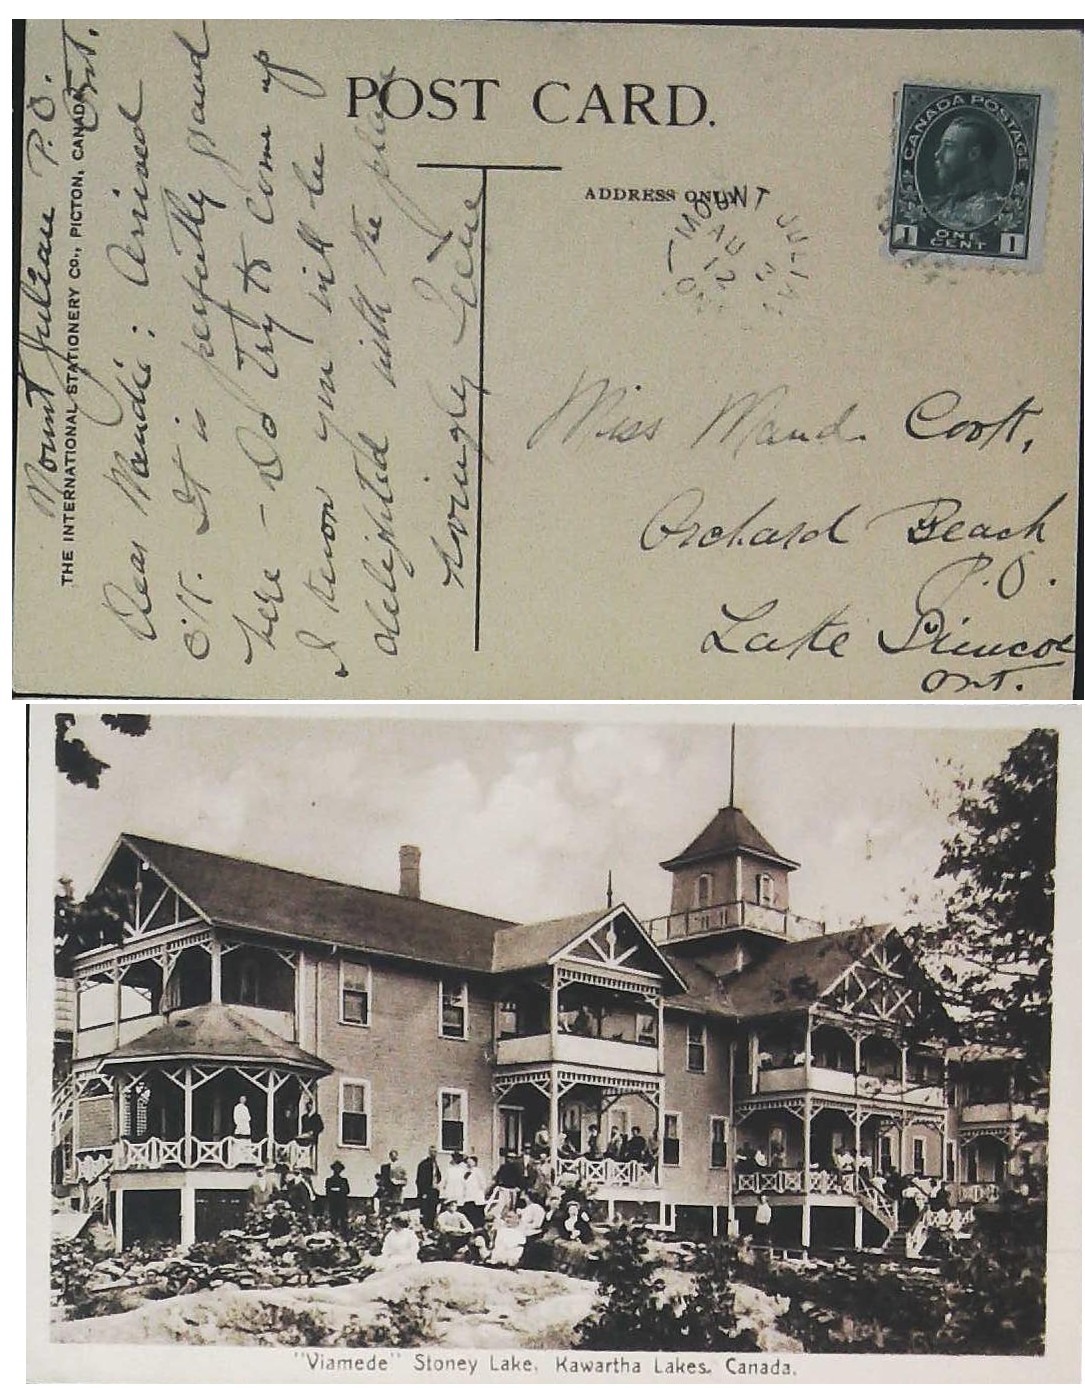 POST CARD.
ADDRESS ONLY
CANADA POSTAGE
1 ONE CENT 1
MOUNT JULIAN
AU 3
12
ONT
THE INTERNATIONAL STATIONERY CO., PICTON, CANADA
Mount Julian P.O.
Ont.
Dear Maudie: Arrived
O.K. It is perfectly grand
here - Do try to come up
I know you will be
delighted with the place
Lovingly
Miss Maud. Cook,
Orchard Beach
P.O.
Lake Simcoe
Ont.
"Viamede" Stoney Lake, Kawartha Lakes. Canada.